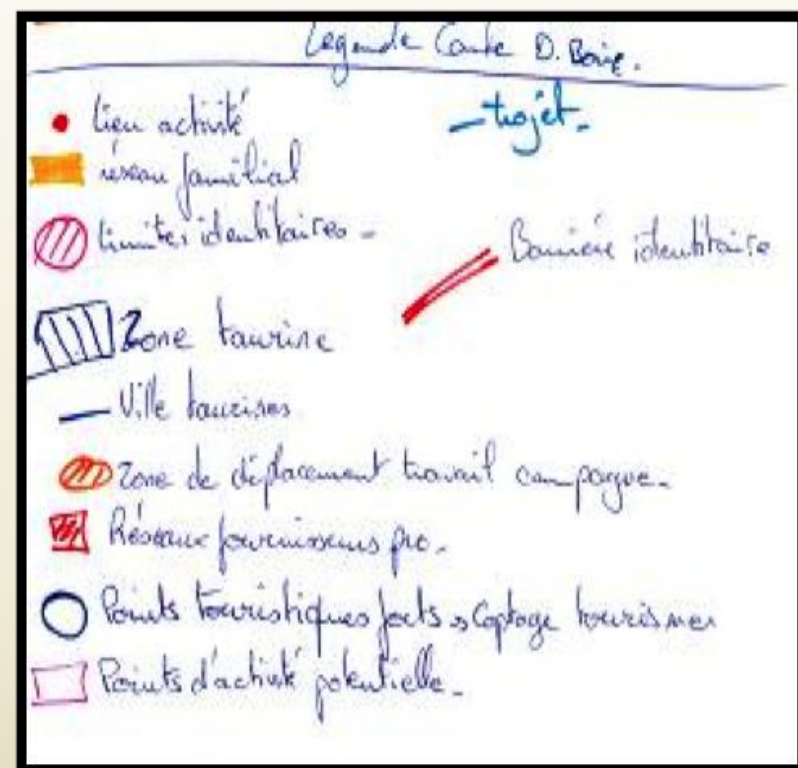 Légende Carte D. Boije.
lieu activité
- trajet -
réseau familial
limites identitaires -
Barrière identitaire
Zone taurine
Ville taurines
Zone de déplacement travail campagne -
Réseaux fournisseurs pro -
Points touristiques forts → Captage tourismes
Points d'activité potentielle -